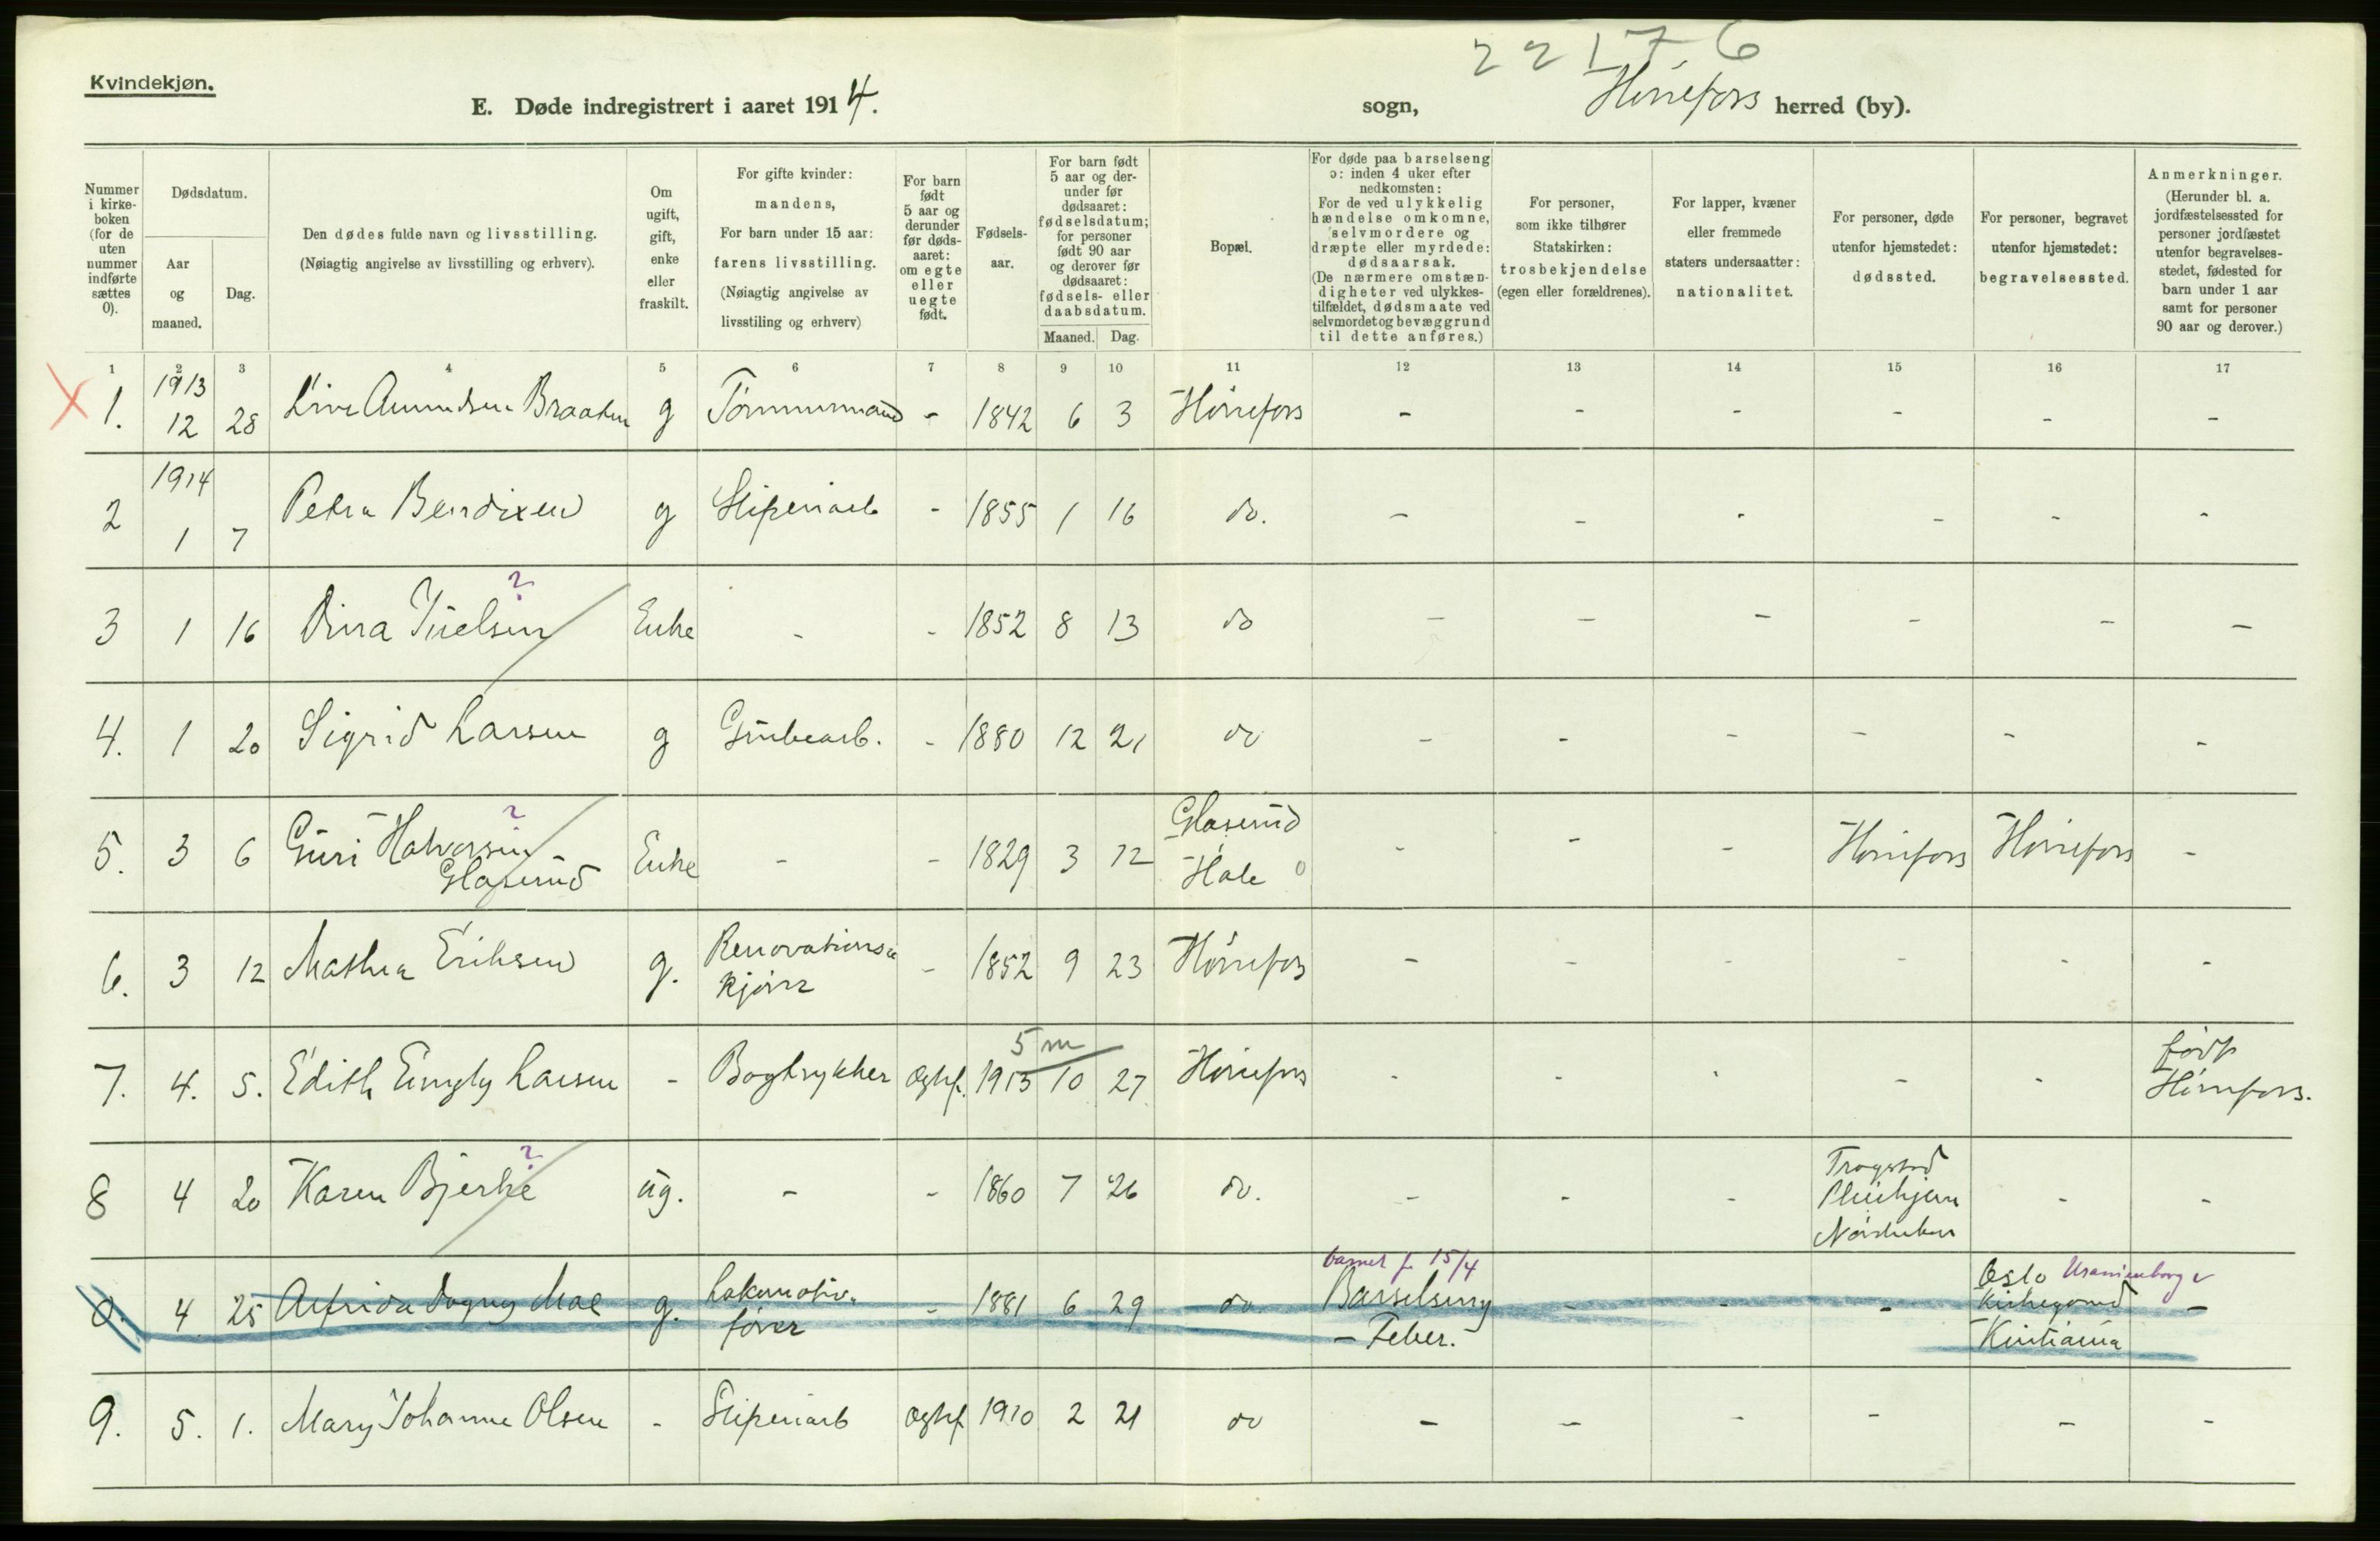 22176
Kvindekjøn.
E. Døde indregistrert i aaret 1914. sogn, Hønefoss herred (by).
Nummer i kirke-boken (for de uten nummer indførte sættes 0).
Dødsdatum.
Aar og maaned.
Dag.
Den dødes fulde navn og livsstilling.
(Nøiagtig angivelse av livsstilling og erhverv).
Om ugift, gift, enke eller fraskilt.
For gifte kvinder: mandens,
For barn under 15 aar: farens livsstilling.
(Nøiagtig angivelse av livsstiling og erhverv)
For barn født 5 aar og derunder før døds-aaret: om egte eller uegte født.
Fødsels-aar.
For barn født 5 aar og der-under før dødsaaret: fødselsdatum; for personer født 90 aar og derover før dødsaaret: fødsels- eller daabsdatum.
Maaned. Dag.
Bopæl.
For døde paa barselseng ɔ: inden 4 uker efter nedkomsten:
For de ved ulykkelig hændelse omkomne, selvmordere og dræpte eller myrdede: dødsaarsak.
(De nærmere omstæn-digheter ved ulykkes-tilfældet, dødsmaate ved selvmordet og bevæggrund til dette anføres.)
For personer, som ikke tilhører Statskirken: trosbekjendelse (egen eller forældrenes).
For lapper, kvæner eller fremmede staters undersaatter: nationalitet.
For personer, døde utenfor hjemstedet: dødssted.
For personer, begravet utenfor hjemstedet: begravelsessted.
Anmerkninger.
(Herunder bl. a. jordfæstelsessted for personer jordfæstet utenfor begravelses-stedet, fødested for barn under 1 aar samt for personer 90 aar og derover.)
1 2 3 4 5 6 7 8 9 10 11 12 13 14 15 16 17
X 1. 1913 12 28 Live Amundsen Braaten g Tømmermand - 1842 6 3 Hønefoss - - - - - -
2 1914 1 7 Petra Bendixen g Sliperiarb - 1855 1 16 do. - - - - - -
3 1 16 Dina Juelsen ? Enke - - 1852 8 13 do - - - - - -
4. 1 20 Sigrid Larsen g Grubearb. - 1880 12 21 do - - - - - -
5. 3 6 Guri Halvorsen ? Glaserud Enke - - 1829 3 12 Glaserud Hole - - - Hønefoss Hønefoss -
6. 3 12 Mathea Eriksen g. Renovations kjører - 1852 9 23 Hønefoss - - - - - -
7. 4. 5. Edith Emely Larsen - Bogtrykker Egtef. 1913 5 m 10 27 Hønefoss - - - - - født Hønefoss.
8 4 20 Karen Bjerke ? ug. - - 1860 7 26 do. - - - Trøgstad Pleiehjem Norderhov - -
0. 4 25 Alfrida Dagny Moe g. Lokomotiv-fører - 1881 6 29 do. barnet f. 15/4 Barselseng - Feber. - - - Oslo Uranienborg Kirkegaard Kristiania -
9. 5. 1. Mary Johanne Olsen - Sliperiarb Egtef 1910 2 21 do - - - - - -